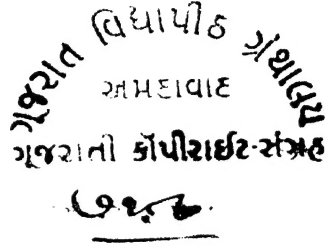 ગૂજરાત વિદ્યાપીઠ ગ્રંથાલય
અમદાવાદ
ગૂજરાતી કૉપીરાઈટ-સંગ્રહ